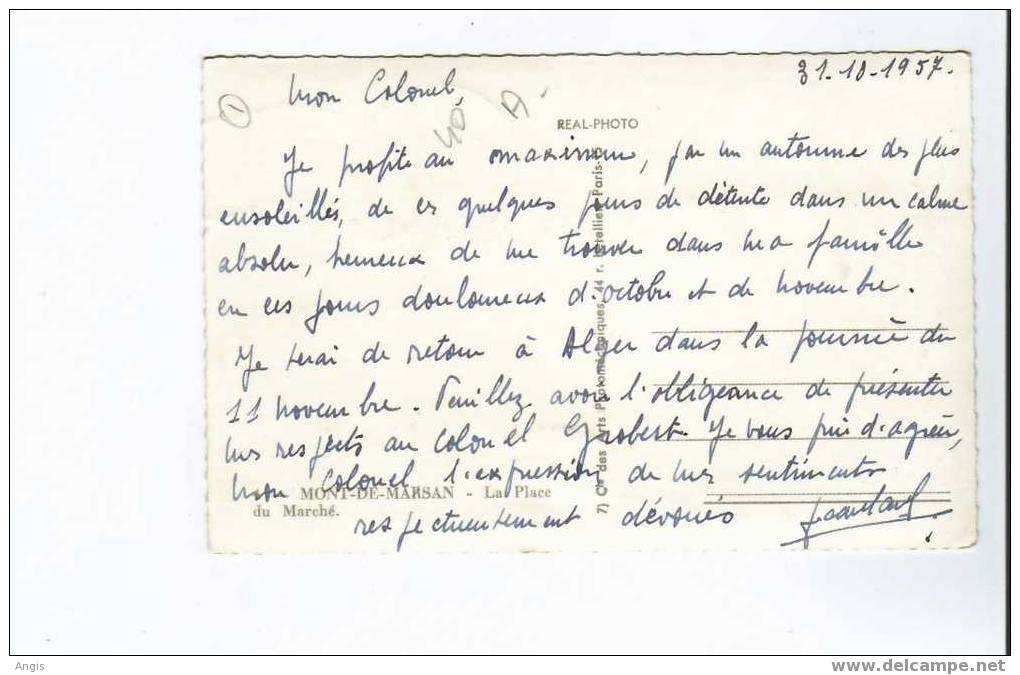 31-10-1957.
Mon Colonel,
1
40
A
REAL-PHOTO
Je profite au maximum, par un automne des plus
ensoleillés, de ces quelques jours de détente dans un calme
absolu, heureux de me trouver dans ma famille
en ces jours douloureux d'octobre et de novembre.
Je serai de retour à Alger dans la journée du
11 novembre. Veuillez avoir l'obligeance de présenter
mes respects au colonel Grobert. Je vous prie d'agréer,
mon colonel l'expression de mes sentiments
respectueusement dévoués
MONT-DE-MARSAN - La Place
du Marché.
7) Cie des Arts Photomécaniques, 44 r. Letellier Paris-15
Angis
www.delcampe.net